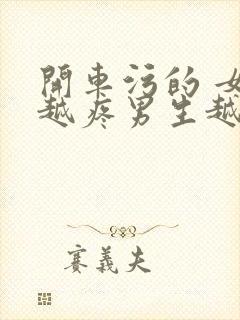 開車污的 女
越疼男生越
賽義夫